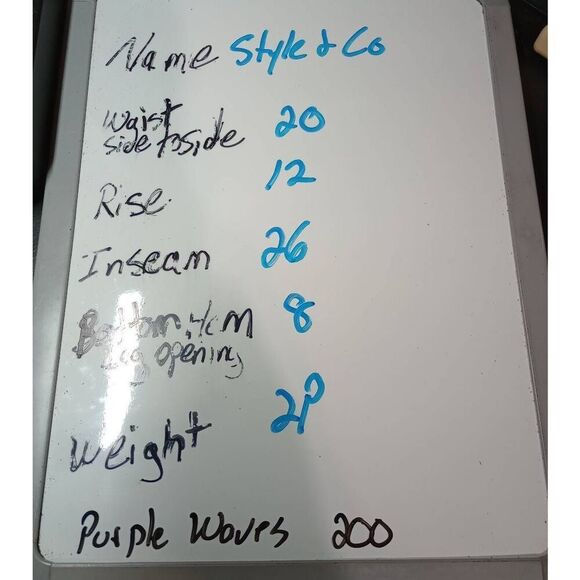 Name Style & Co
Waist side to side 20
Rise 12
Inseam 26
Bottom
leg opening 8
Weight 2P
Purple Waves 200